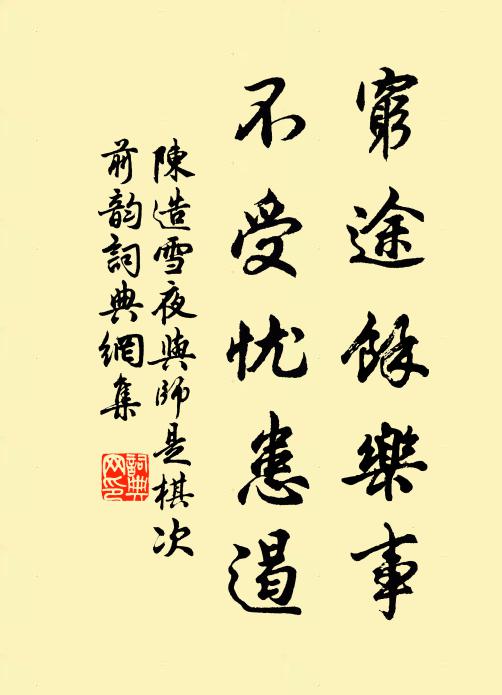 窮途餘樂事
不受忧患遏
陳造雪夜與師是棋次
前韵詞典網集
詞典網印